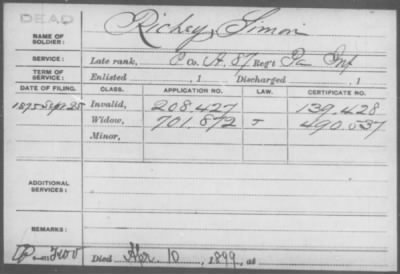 DEAD
NAME OF SOLDIER: Richey, Simon
SERVICE: Late rank, P Co. A, 87 Reg't Pa Inf
TERM OF SERVICE: Enlisted , 1 Discharged , 1
DATE OF FILING. CLASS. APPLICATION NO. LAW. CERTIFICATE NO.
1875 Sept. 25 Invalid, 208.427 139.428
Widow, 701.872 J 490.537
Minor,
ADDITIONAL SERVICES:
REMARKS:
Died Apr. 10, 1899, at